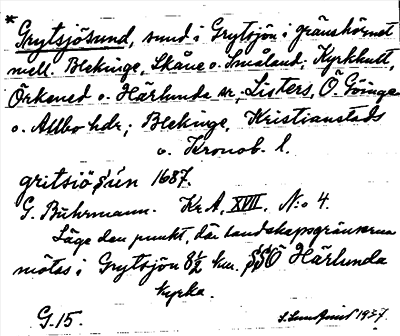 * Grytsjösund, sund i Grytsjön i gränshörnet
mell. Blekinge, Skåne o. Småland; Kyrkhult,
Örkened o. Härlunda snr, Listers, Ö. Göinge
o. Allbo hdr; Blekinge, Kristianstads
o. Kronob. l.
gritsiö 1687.
G. Buhrmann. Kr.A, XVIII, N:o 4.
Läge den punkt, där landskapsgränserna
mötas i Grytsjön 8½ km. SSÖ Härlunda
kyrka.
G.15. 1937.